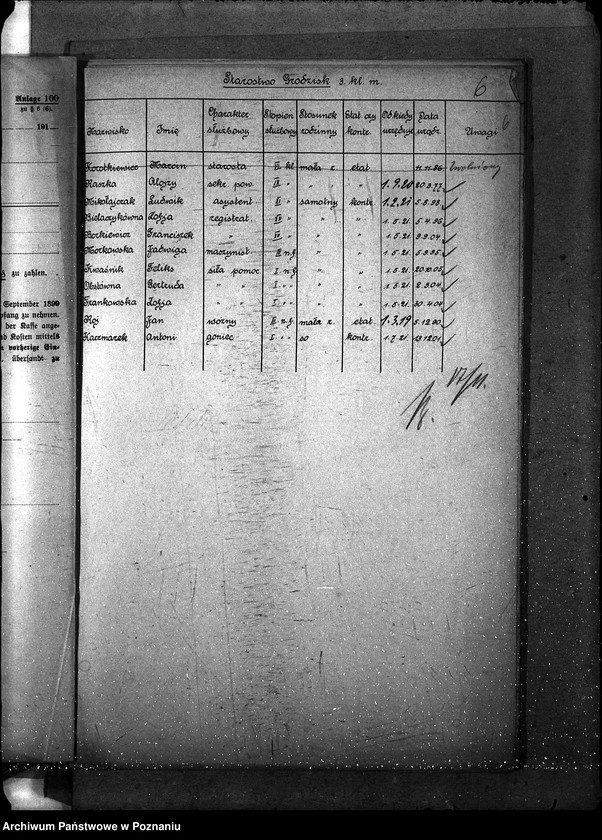 Anlage 100
zu § 6 (6).
191
zu zahlen.
September 1899
zu nehmen.
der Kasse ange-
Kosten mittels
vorherige Ein-
übersandt zu
Starostwo Grodzisk 3. kl. m.
6
Nazwisko Imię Charakter służbowy Stopień służbowy Stosunek rodzinny Etat czy kontr. Od kiedy urzęduje Data urodz. Uwagi
Korotkiewicz Marcin starosta VI kl. mała r. etat. 11.11.86 Zwolniony
Kaszka Alojzy sekr. pow. IX " " " " 1.9.20 20.3.77
Mikołajczak Ludwik asystent IV " samotny kontr. 1.2.21 5.8.98
Bielaczykówna Zofja registrat. IV " " " 1.5.21 5.4.96
Borkiewicz Franciszek " IV " " " 1.5.21 9.9.04
Morkowska Jadwiga maszynist. II n.f. " " 1.5.21 5.9.95
Kwaśnik Feliks siła pomoc. I n.f. " " 1.5.21
Gertruda " " I " " " " 1.5.21 2.9.04
Frankowska Zofja " " I " " " " 1.5.21 30.4.04
Roj Jan woźny II n.f. mała r. etat. 1.3.19 5.12.80
Kaczmarek Antoni goniec I " " so kontr. 1.7.21 13.12.01
Archiwum Państwowe w Poznaniu